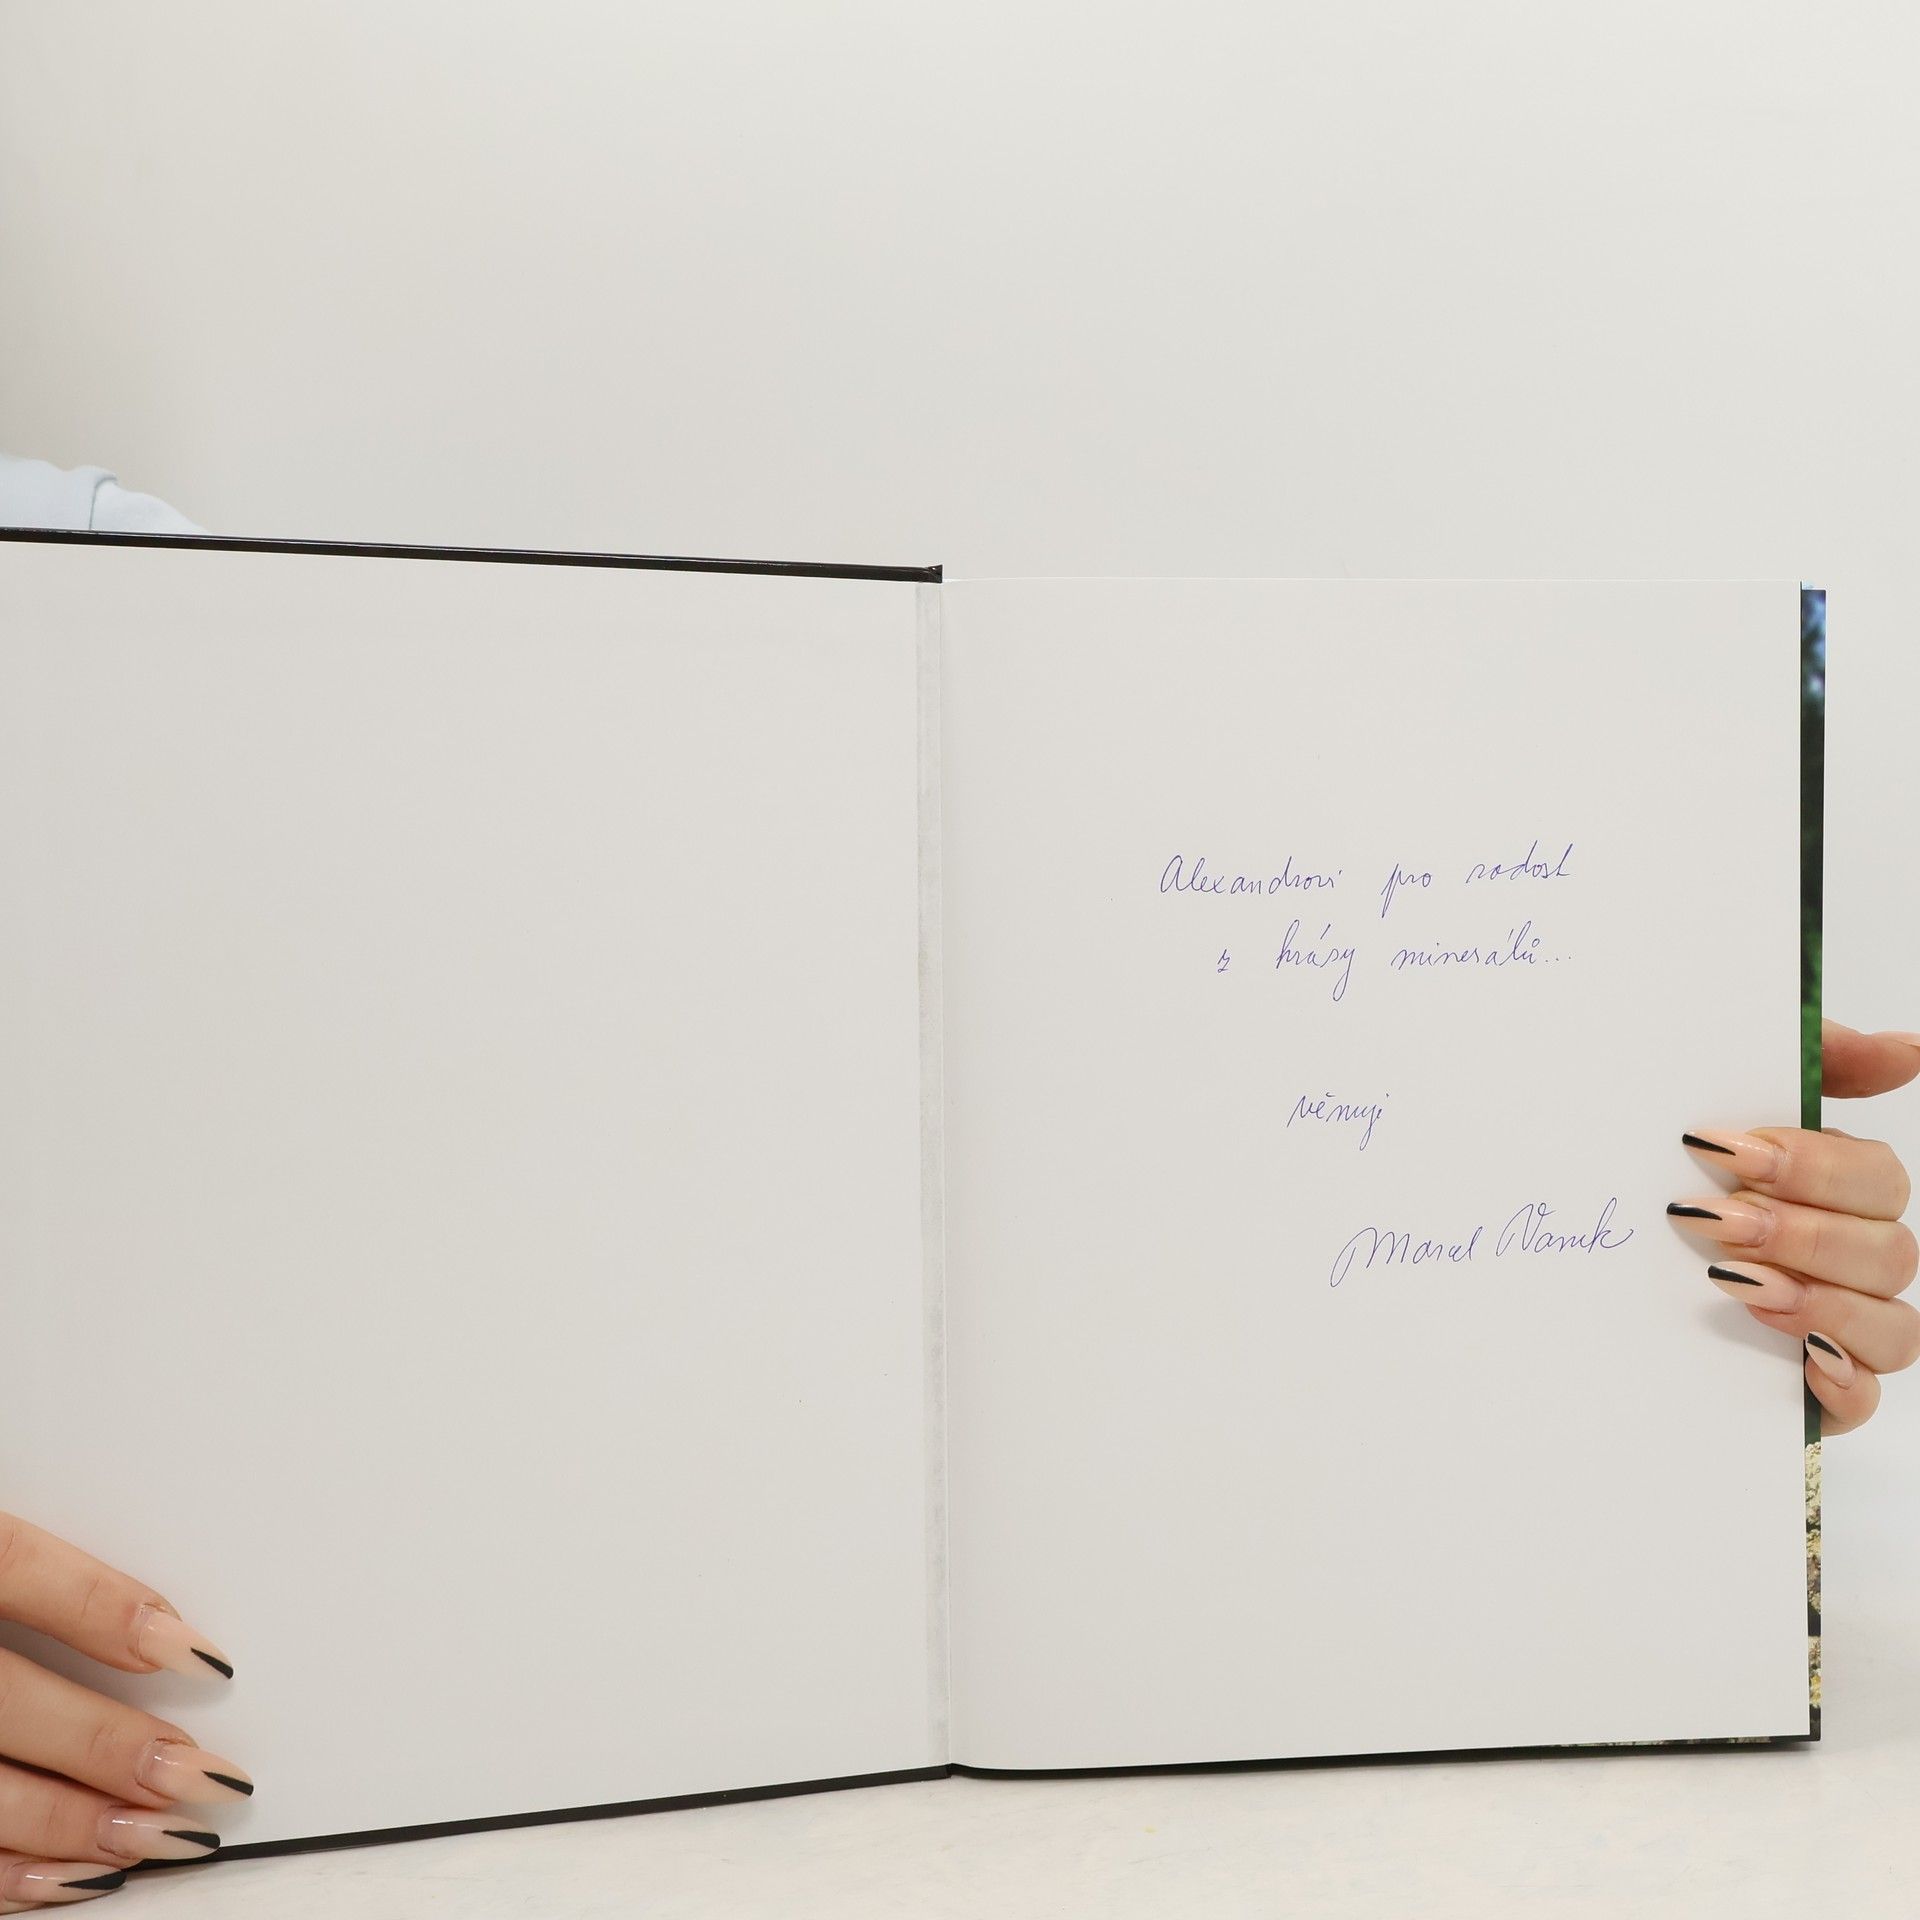 Alexandrovi pro radost
z krásy minerálů...
věnuji
Marcel Vanek